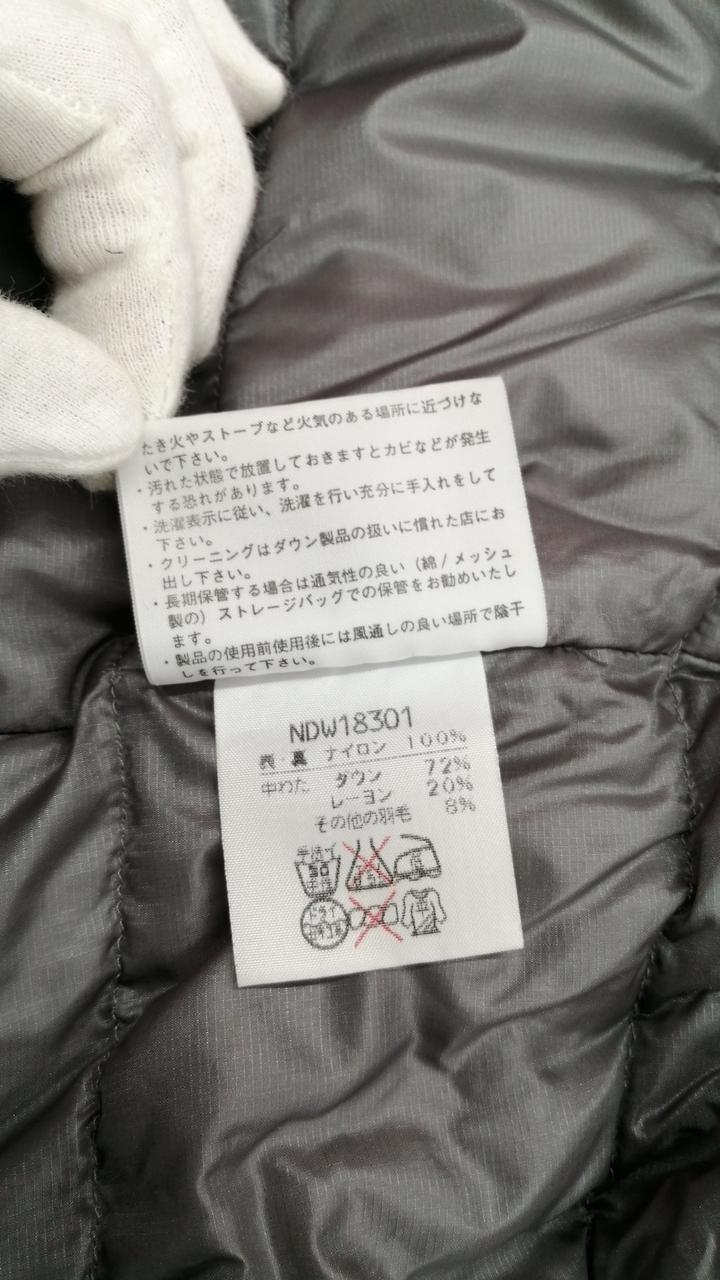 たき火やストーブなど火気のある場所に近づけな
いで下さい。
・汚れた状態で放置しておきますとカビなどが発生
する恐れがあります。
・洗濯表示に従い、洗濯を行い充分に手入れをして
下さい。
・クリーニングはダウン製品の扱いに慣れた店にお
出し下さい。
・長期保管する場合は通気性の良い（綿/メッシュ
製の）ストレージバッグでの保管をお勧めいたし
ます。
・製品の使用前使用後には風通しの良い場所で陰干
しを行って下さい。
NDW18301
表・裏 ナイロン 100%
中わた ダウン 72%
レーヨン 20%
その他の羽毛 8%
手洗イ
30
中性
ドライ